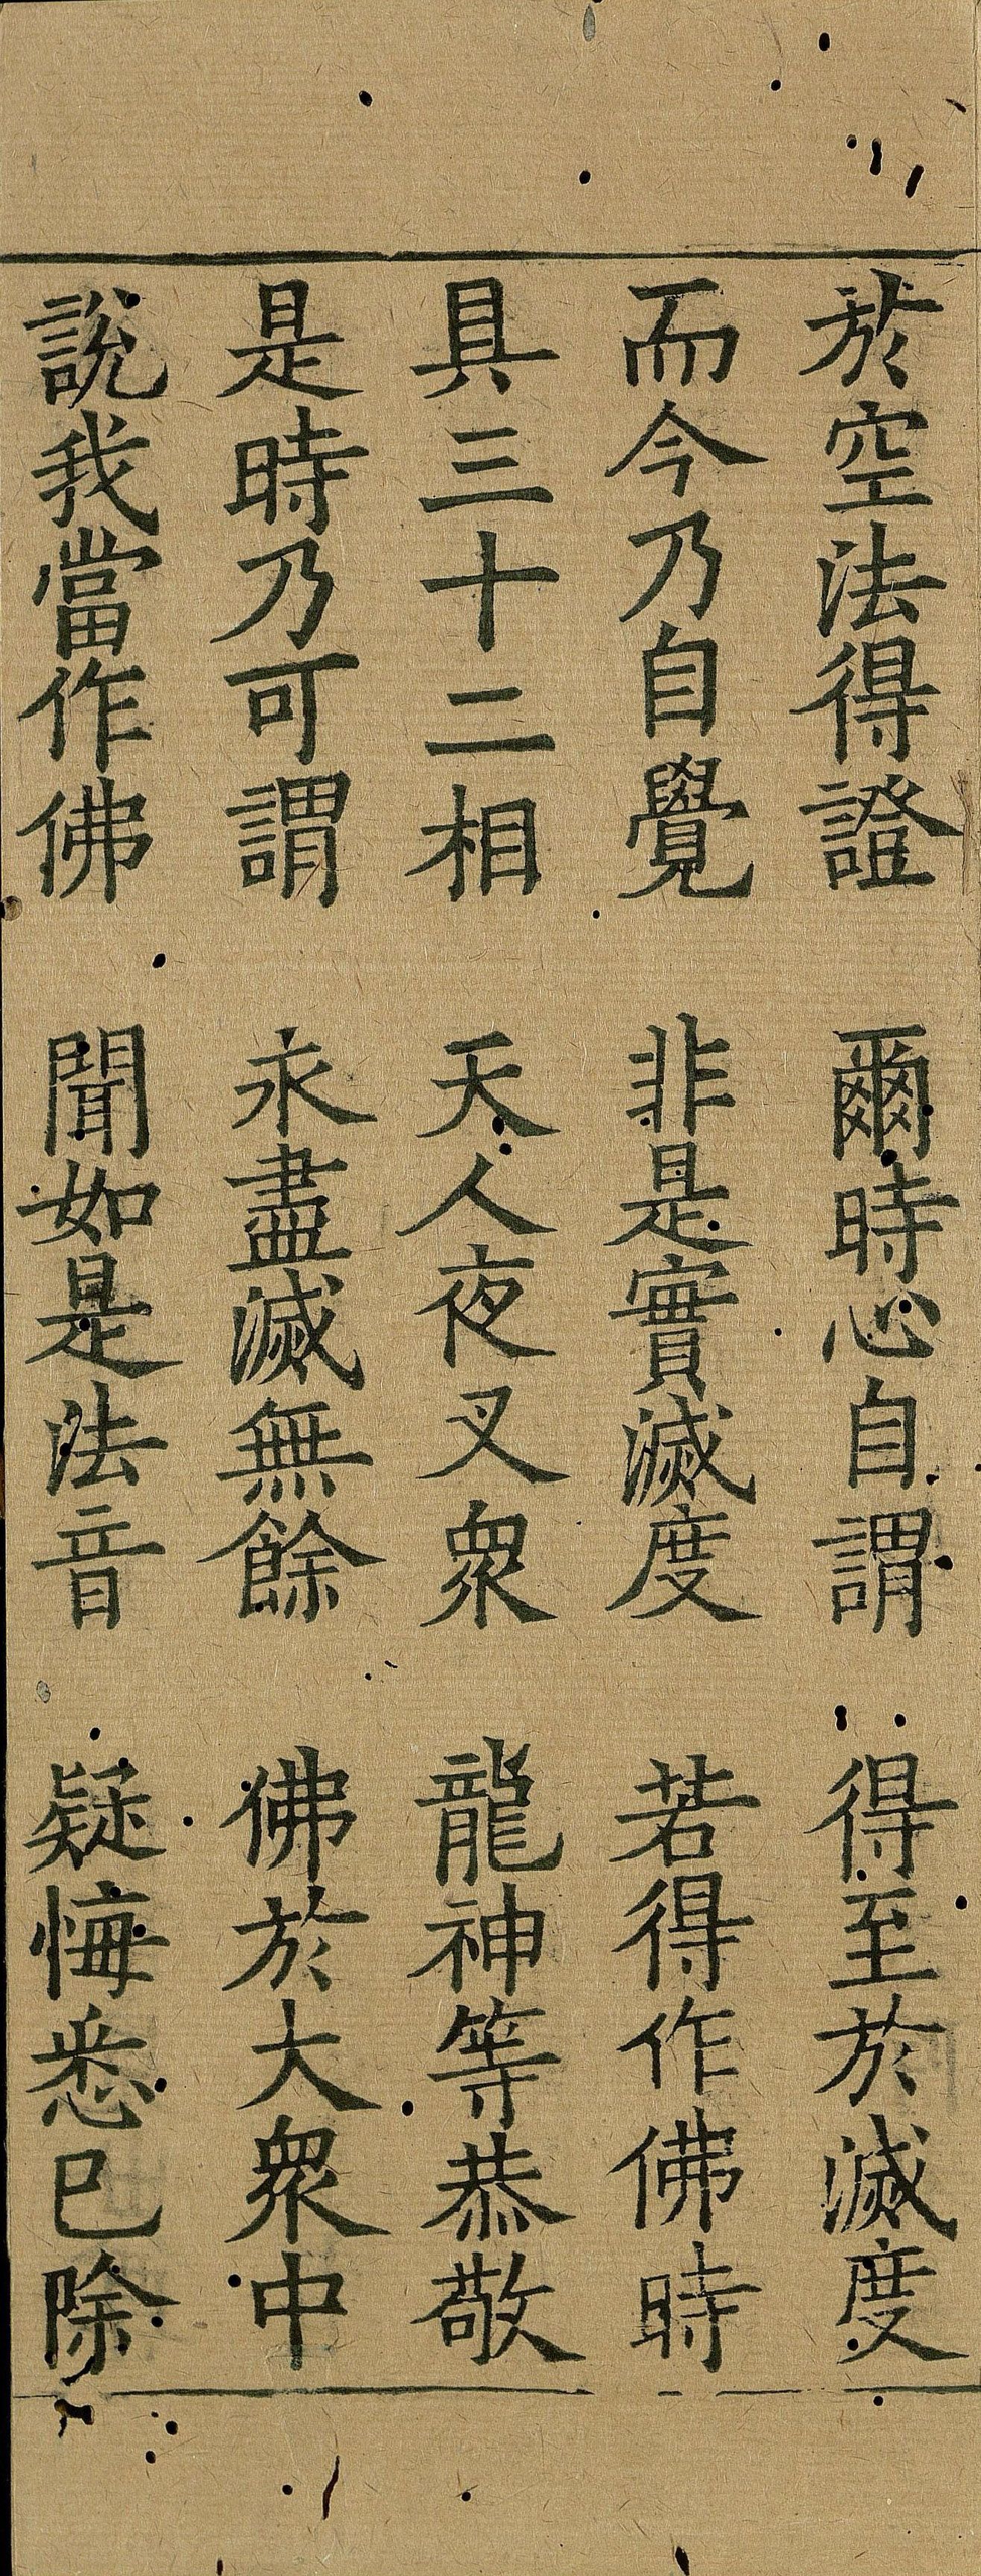 於空法得證　爾時心自謂　得至於滅度
而今乃自覺　非是實滅度　若得作佛時
具三十二相　天人夜叉衆　龍神等恭敬
是時乃可謂　永盡滅無餘　佛於大衆中
說我當作佛　聞如是法音　疑悔悉已除